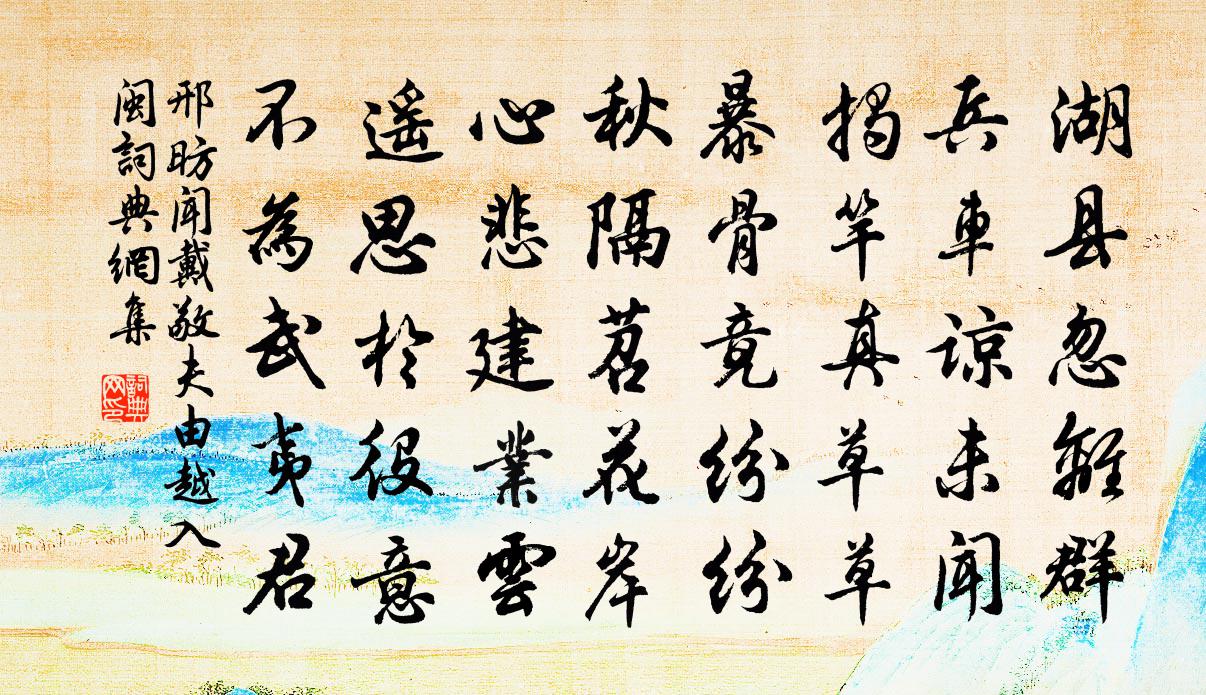 湖县忽離群
兵車諒未聞
揭竿真草草
暴骨竟紛紛
秋隔苕花岸
心悲建業雲
遥思於役意
不為武夷君
邢昉聞戴敬夫由越入
閩詞典網集
詞典
网印